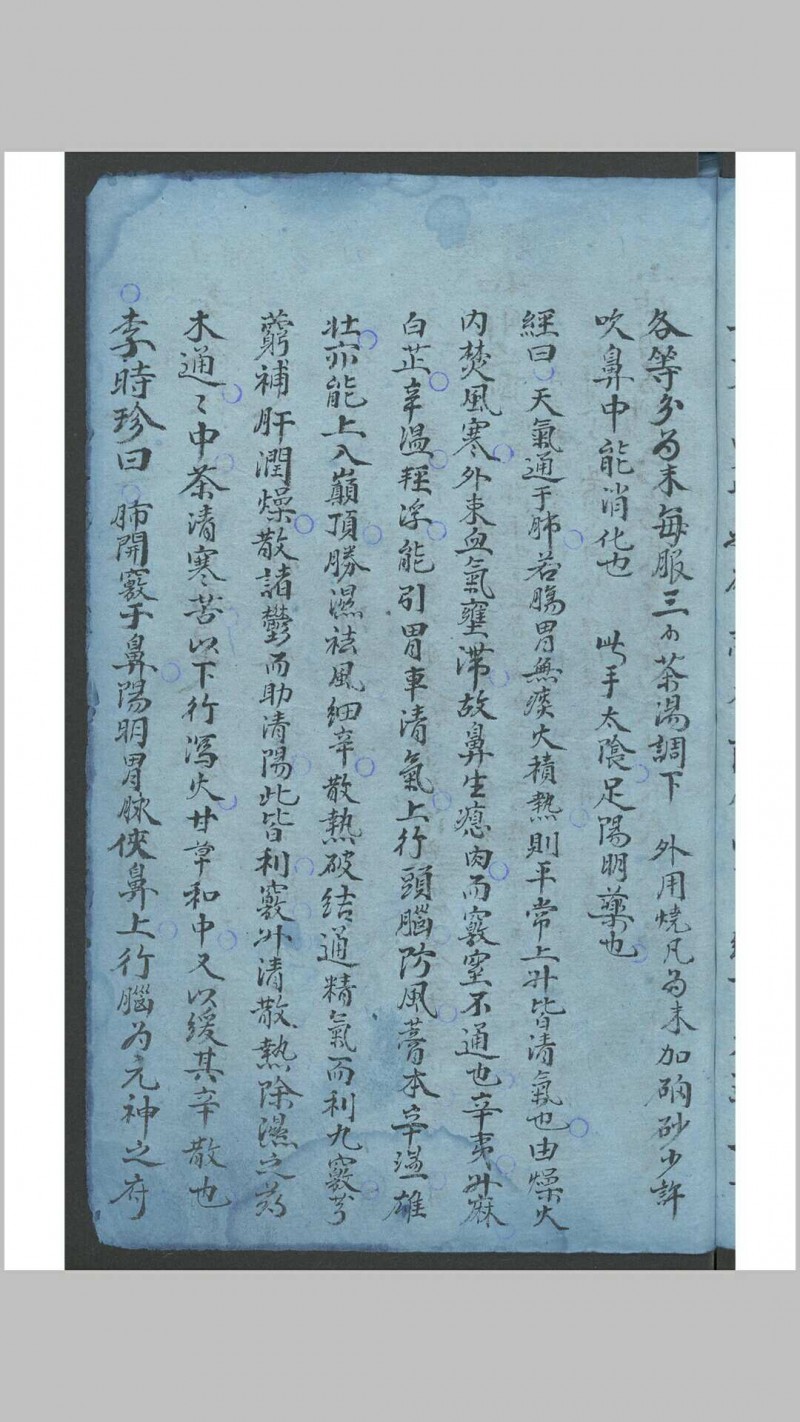 各等分为末每服三个茶湯調下　外用燒凡为末加硇砂少許
吹鼻中能消化也　此手太陰足陽明藥也
經曰　天氣通于肺若腸胃無痰火積熱則平常上升皆清氣也由燥火
内焚風寒外束血氣壅滯故鼻生瘜肉而竅窒不通也辛夷升麻
白芷辛温輕浮能引胃中清氣上行頭腦防风藁本辛温雄
壮亦能上入巔頂勝濕祛風細辛散熱破结通精氣而利九竅芎
藭補肝潤燥散諸鬱而助清陽此皆利竅升清散熱除濕之药
木通〻中茶清寒苦以下行瀉火甘草和中又以缓其辛散也
李時珍曰　肺開竅于鼻陽明胃脉俠鼻上行腦为元神之府